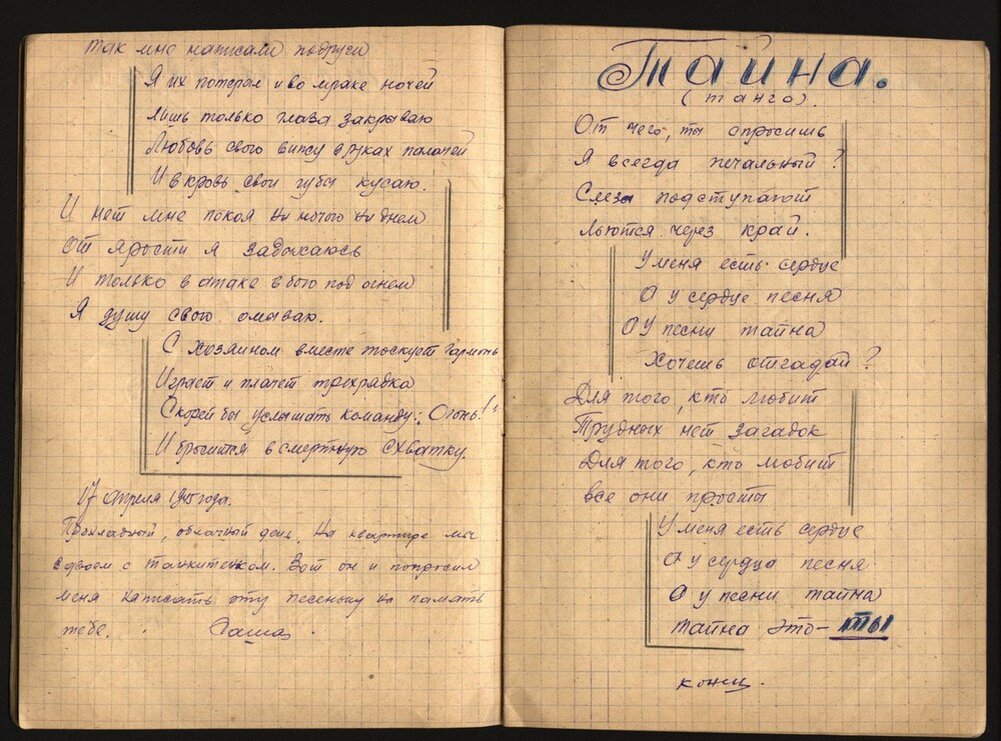 Так мне написали подруги
Я их потерял и во мраке ночей
Лишь только глаза закрываю
Любовь свою вижу в руках палачей
И в кровь свои губы кусаю.
И нет мне покоя ни ночью ни днем
От ярости я задыхаюсь
И только в атаке в бою под огнем
Я душу свою омываю.
С хозяином вместе тоскует гармонь
Играет и плачет трехрядка
Скорей бы услышать команду: Огонь!"
И бросится в смертную схватку.
17 апреля 1945 года.
Прохладный, облачный день. На квартире мы
сдвоем с танкистенком. Вот он и попросил
меня написать эту песенку на память
тебе. Саша
Тайна.
(танго).
От чего, ты спросишь
Я всегда печальный?
Слезы подступают
Льются через край.
У меня есть сердце
А у сердце песня
А у песни тайна
Хочешь отгадай?
Для того, кто любит
Трудных нет загадок
Для того, кто любит
все они просты
У меня есть сердце
А у сердца песня
А у песни тайна
тайна это - ты
конец.